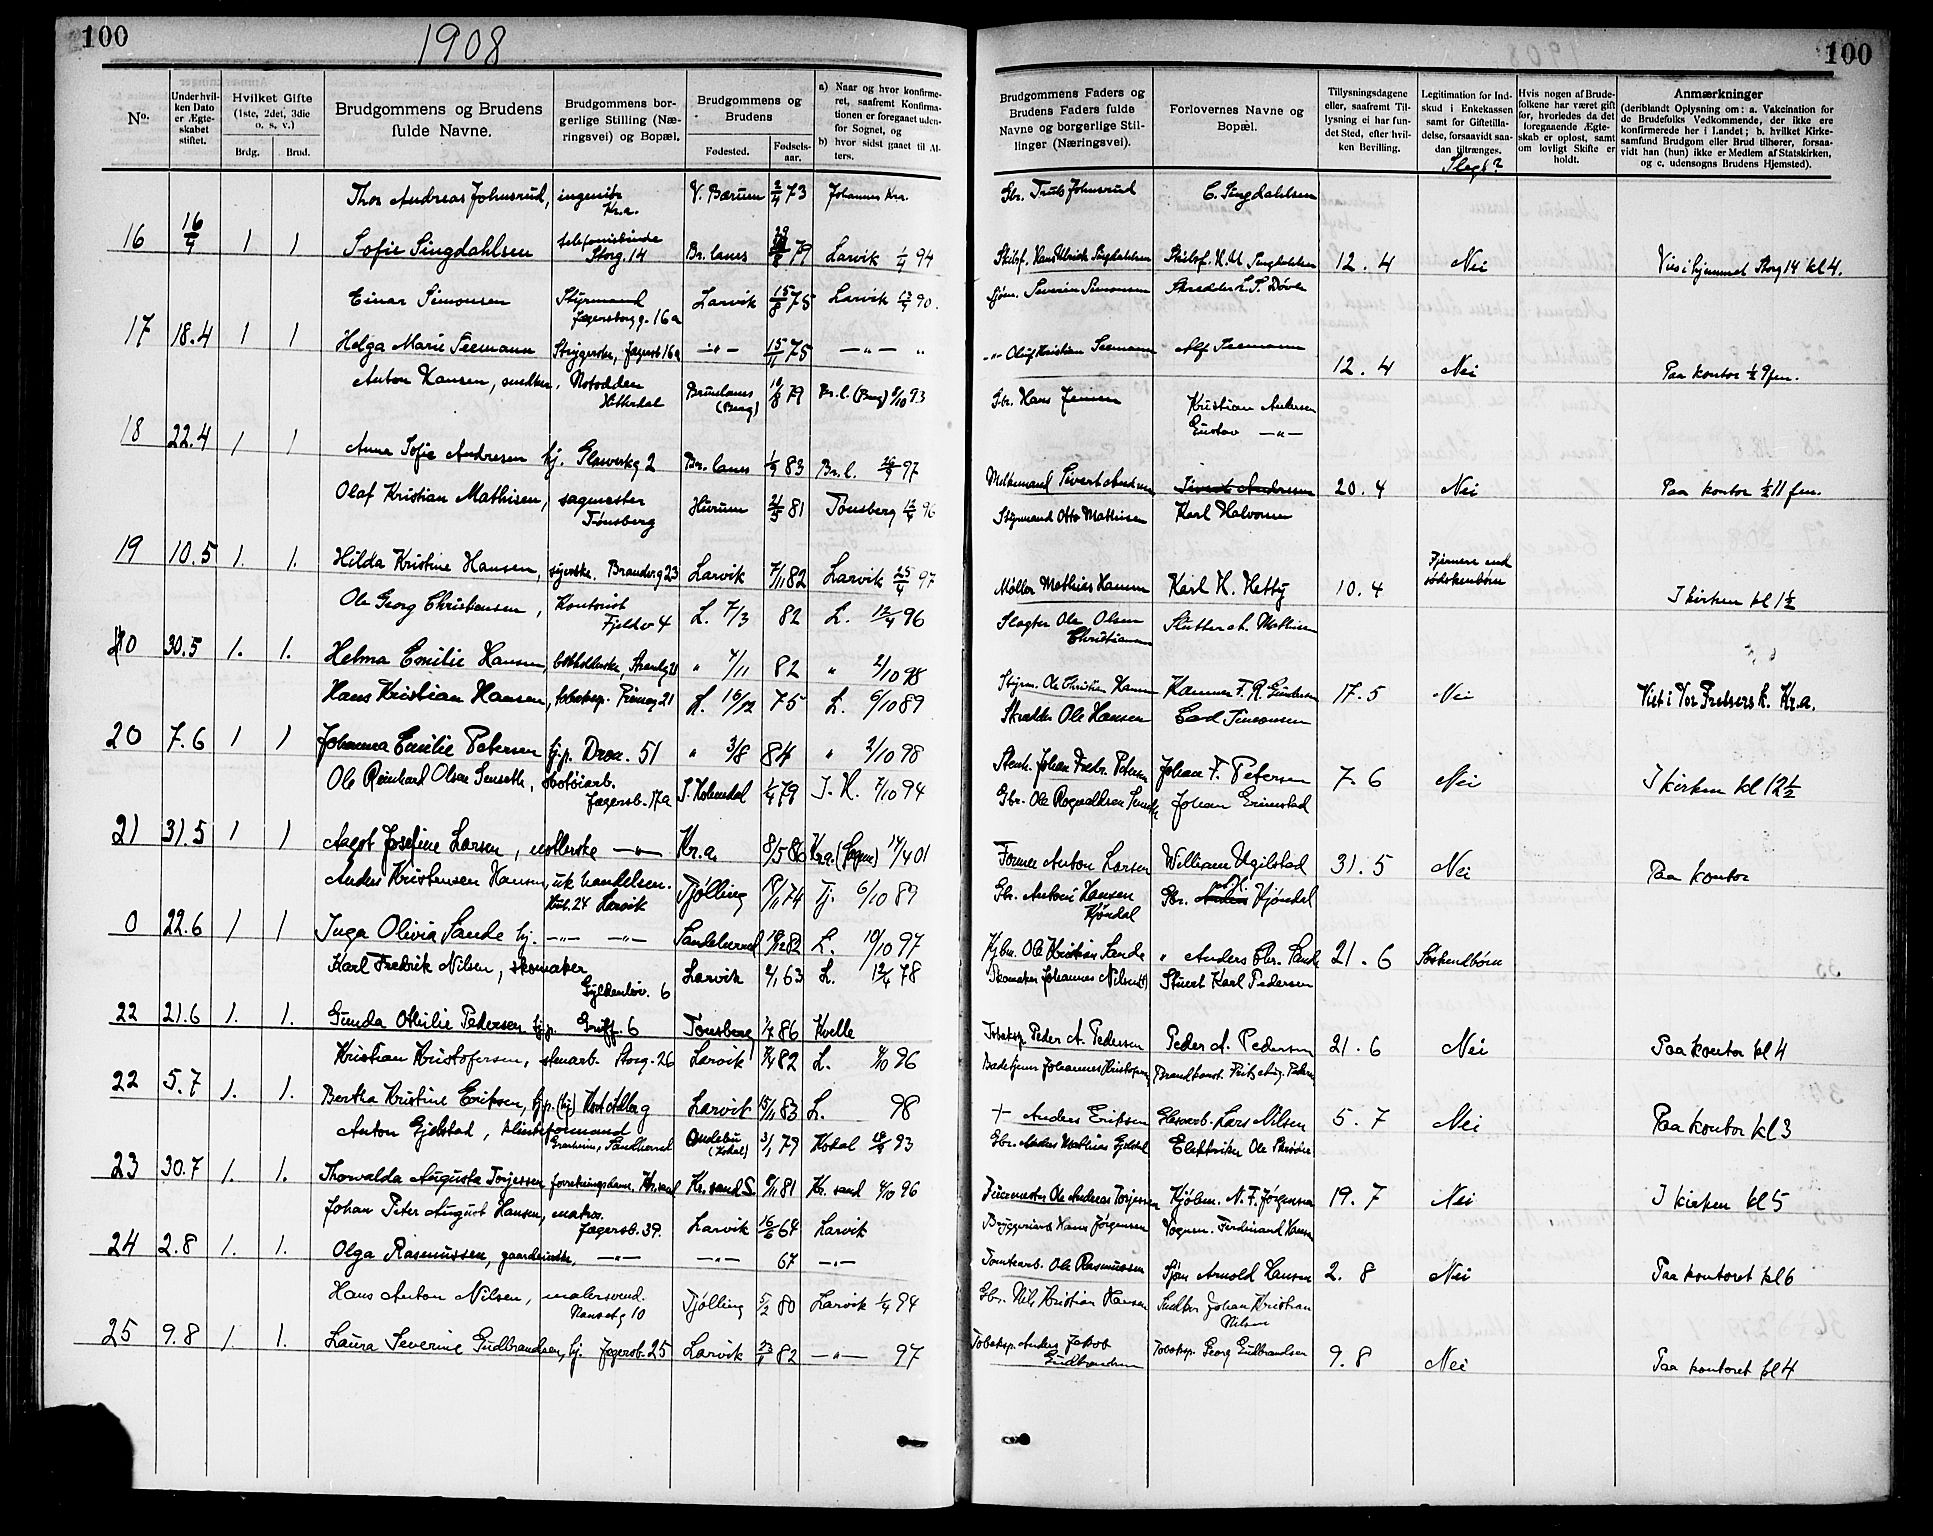 100
1908
100
No.
Under hvilken Dato er Ægteskabet stiftet.
Hvilket Gifte (1ste, 2det, 3die o. s. v.)
Brdg.
Brud.
Brudgommens og Brudens fulde Navne.
Brudgommens borgerlige Stilling (Næringsvei) og Bopæl.
Brudgommens og Brudens
Fødested.
Fødselsaar.
a) Naar og hvor konfirmeret, saafremt Konfirmationen er foregaaet udenfor Sognet, og
b) hvor sidst gaaet til Alters.
Brudgommens Faders og Brudens Faders fulde Navne og borgerlige Stillinger (Næringsvei).
Forlovernes Navne og Bopæl.
Tillysningsdagene eller, saafremt Tillysning ei har fundet Sted, efter hvilken Bevilling.
Legitimation for Indskud i Enkekassen samt for Giftetilladelse, forsaavidt saadan tiltrænges.
Slegt?
Hvis nogen af Brudefolkene har været gift før, hvorledes da det foregaaende Ægteskab er opløst, samt om lovligt Skifte er holdt.
Anmærkninger
(deriblandt Oplysning om: a. Vakcination for de Brudefolks Vedkommende, der ikke ere konfirmerede her i Landet; b. hvilket Kirkesamfund Brudgom eller Brud tilhører, forsaavidt han (hun) ikke er Medlem af Statskirken, og c. udensogns Brudens Hjemsted).
Thor Andreas Johnsrud, ingeniør Kr.a. V. Bærum 2/4 73 Johannes Kr.a. Gbr. Truls Johnsrud C. Singdahlsen
16 16/4 1 1 Sofie Singdahlsen telefonistinde Storg. 14 Br.lanes 79 Larvik 1/4 94 Skibsf. Hans Ulrich Singdahlsen Skibsf. H. U. Singdahlsen 12.4 Nei Viet i hjemmet Storg 14 kl 4.
Einar Simonsen Styrmand Jegersborg g. 16a Larvik 15/8 75 Larvik 13/4 90. Sjøm. Severin Simonsen Skrædder L. S. Bøvle
17 18.4 1 1 Helga Marie Seemann Strygerske, Jegersb 16a -"- 15/11 75 -"- " -"- Oluf Kristian Seemann Alf Seemann 12.4 Nei Paa kontor ½ 9 fm.
Anton Hansen, snedker, Notodden Hitterdal Brunlanes (Berg) 10/8 79 Br.l. (Berg) 8/10 93 Gbr. Hans Jensen Kristian Andersen
Gustav -"-
18 22.4 1 1 Anna Sofie Andresen hj. Glasverkg 2 Br.lanes 1/9 83 Br.l. 26/9 97 Melkemand Sivert Andresen Sivert Andresen 20.4 Nei Paa kontor ½ 11 fm.
Olaf Kristian Mathisen, sagmester Tønsberg Hurum 21/5 81 Tønsberg 12/4 96 Styrmand Otto Mathisen Karl Halvorsen
19 10.5 1. 1. Hilda Kristine Hansen, syerske. Brandv.g 23 Larvik 7/11 82 Larvik 25/4 97 Møller Mathias Hansen Karl H. Hetty 10.4 Fjernere end sødskenbørn I kirken kl 1½
Ole Georg Christensen, Kontorist Fjeldv 4 L. 7/3 82 L. 12/4 96 Slagter Ole Olsen Christiansen A. Mathisen
0 30.5 1. 1. Helma Emilie Hansen, Strandg 21 " 4/11 82 " 2/10 98 Styrm. Ole Christian Hansen F. R. Gundersen 17.5 Nei Viet i Vor Frelsers k. Kr.a.
Hans Kristian Hansen, tobaksp. Prinseg 21 L. 16/12 75 L. 6/10 89 Skrædder Ole Hansen Carl Simonsen
20 7.6 1 1 Johanna Emilie Petersen hj.p. Dron. 51 " 3/8 84 " 2/10 98 Stenh. Johan Fredr. Petersen Johan F. Petersen 7.6 Nei I kirken kl 12½
Ole Reinhard Olsen Senseth, skotøiarb. Jegersb. 17a S. Holmedal 1/4 79 S. H. 7/10 94 Gbr. Ole Rognaldsen Senseth Johan Grimstad
21 31.5 1 1 Aagot Josefine Larsen, nøtlerske -"- Kr.a. 8/5 86 Kr.a. (Sogne) 14/4 01 Former Anton Larsen William Ugilstad 31.5 Nei Paa kontor
Anders Kristensen Hansen, utk handelsm. 24 Larvik Tjølling 18/11 74 Tj. 6/10 89 Gbr. Antoni Hansen Hjøndal Gbr. Anders Hjøndal
0 22.6 1 1 Inga Olivia Sande hj. -"- -"- Sandeherred 18/12 82 L. 10/10 97 Ole Kristian Sande " Anders Chr. Sande 21.6 Søskendbørn
Karl Fredrik Nilsen, skomaker Gyldenløv. 6 Larvik 63 L. 12/4 78 Skomaker Johannes Nilsen Stuert Karl Pedersen
22 21.6 1. 1. Gunda Othilie Pedersen hj.p. Griff. 6 Tønsberg 86 Kvelle Tobaksp. Peder A. Pedersen Peder A. Pedersen 21.6 Nei Paa kontor kl 4
Kristian Kristofersen, stenarb. Storg. 26 Larvik 82 L. 4/10 96 Badetjener Johannes Kristofersen Brandkonst. Fritz Aug. Pedersen
22 5.7 1. 1. Bertha Kristine Eriksen, hj.p. (hj) Larvik 15/11 83 L. 98 + Anders Eriksen Glasarb. Lars Nilsen 5.7 Nei Paa kontor kl 3
Anton Gjelstad, Sandherred Andebu (Kodal) 3/1 79 Kodal 93 Gbr. Anders Mathias Gjelstad Elektriker Ole
23 30.7 1. 1. Thorvalda Augusta Torjessen forretningsdame Kr.sand Kr.sand S. 81 Kr.sand 4/10 96 Ole Andreas Torjessen Kjøbm. N. F. Jørgensen 19.7 Nei I kirken kl 5
Johan Peter August Hansen, matros. Jegersb. 39. Larvik 16/6 64 Larvik Bryggeriarb Hans Jørgensen Vognm. Ferdinand Hansen
24 2.8 1. 1. Olga Rasmussen, -"- -"- 67 -"- Tomtearb. Ole Rasmussen Sjøm Arnold Hansen 2.8 Nei Paa kontoret kl 6
Hans Anton Nilsen, malersvend. Nansetg 10 Tjølling 5/2 80 Larvik 1/4 94 Gbr. Nils Kristian Hansen Snedker Johan Kristian Nilsen
25 9.8 1. 1. Laura Severine Gudbrandsen, hj. Jegersb. 25 Larvik 82 -"- 97 Tobaksp. Anders Jakob Gudbrandsen Tobaksp. Georg Gudbrandsen 9.8 Nei Paa kontoret kl 4